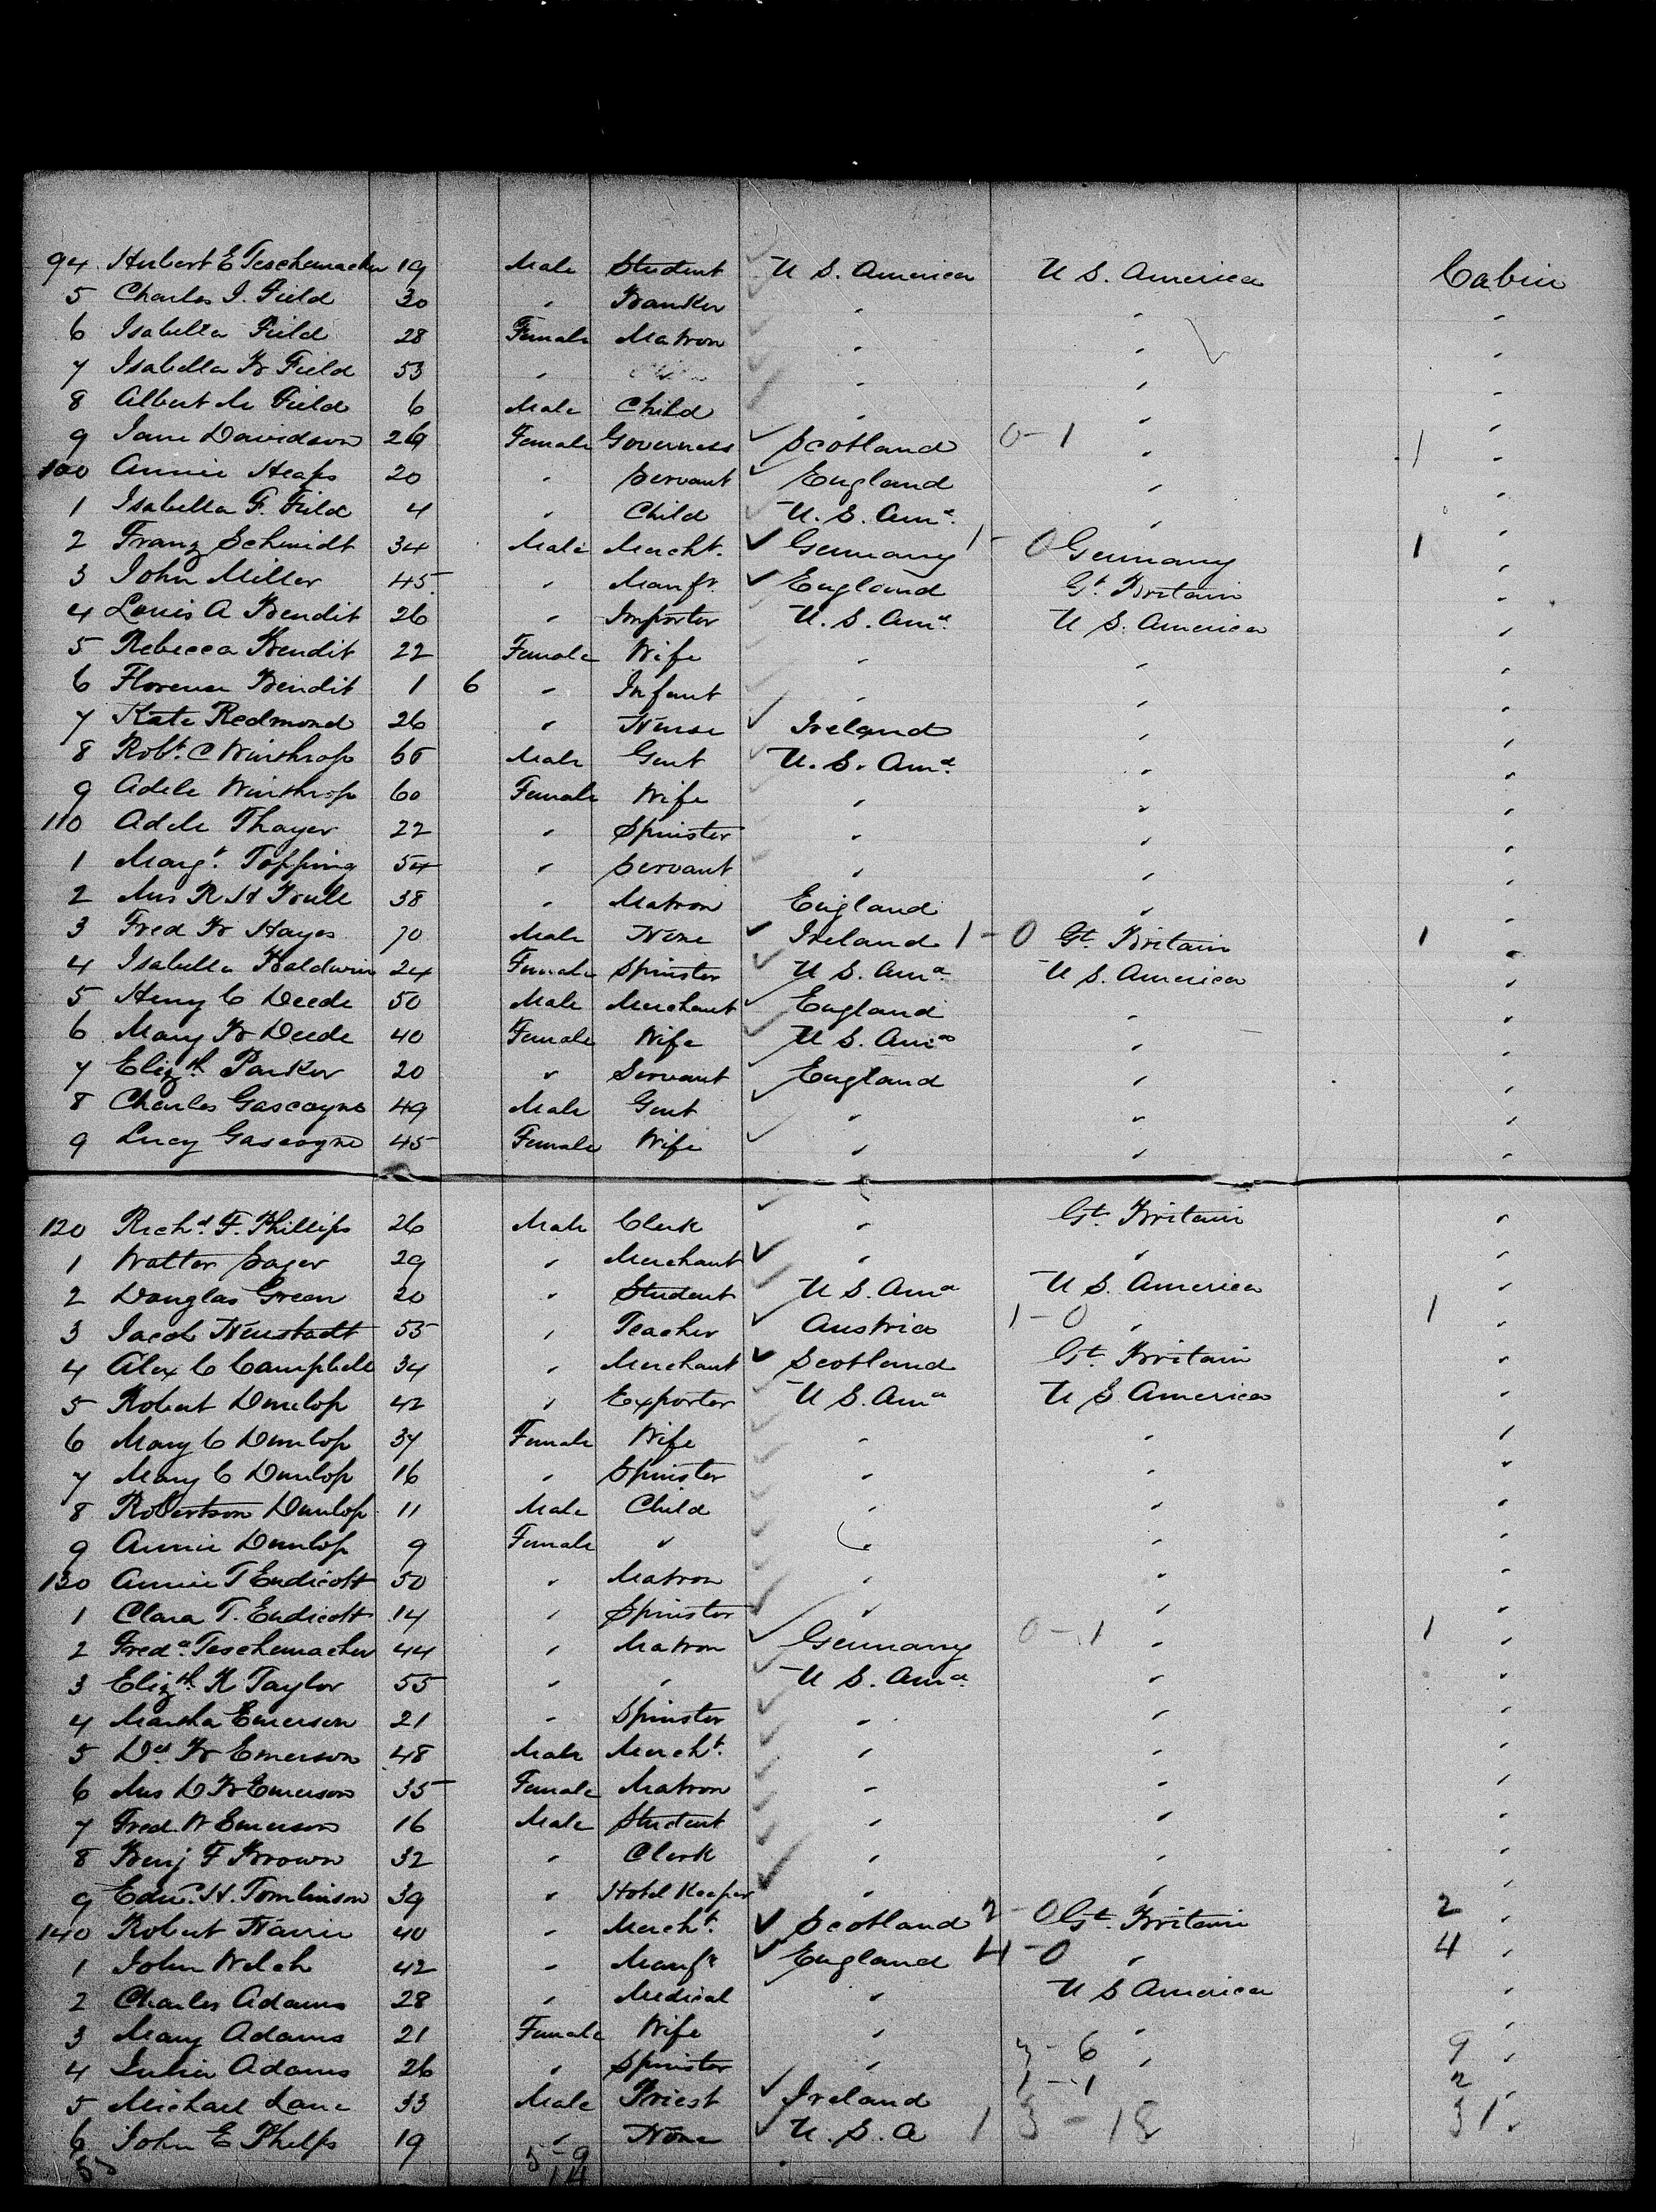 94 Hubert E Teschemacher 19 Male Student U S. America U S. America Cabin
5 Charles I. Field 30 " Banker " " "
6 Isabella Field 28 Female Matron " " "
7 Isabella B Field 53 " " " "
8 Albert M Field 6 Male Child " " "
9 Jane Davidson 26 Female Governess Scotland 0-1 " 1 "
100 Annie Heaps 20 " Servant England " "
1 Isabella F. Field 4 " Child U. S. Ama. " "
2 Franz Schmidt 34 Male Mercht. Germany 1-0 Germany 1 "
3 John Miller 45 " Manfr. England Gt. Britain "
4 Louis A Bendit 26 " Importer U. S. Ama. U S. America "
5 Rebecca Bendit 22 Female Wife " " "
6 Florence Bendit 1 6 " Infant " " "
7 Kate Redmond 26 " Nurse Ireland " "
8 Robt. C Winthrop 65 Male Gent U. S. Ama. " "
9 Adele Winthrop 60 Female Wife " " "
110 Adele Thayer 22 " Spinster " " "
1 Margt. Topping 54 " Servant " " "
2 Mrs R H Bull 38 " Matron England " "
3 Fred B Hayes 70 Male None Ireland 1-0 Gt. Britain 1 "
4 Isabella Baldwin 24 Female Spinster U S. Ama U S. America "
5 Henry C Deede 50 Male Merchant England " "
6 Mary B Deede 40 Female Wife U S. Ama " "
7 Elizth. Parker 20 " Servant England " "
8 Charles Gascoyne 49 Male Gent " " "
9 Lucy Gascoyne 45 Female Wife " " "
120 Richd. F. Phillips 26 Male Clerk " Gt. Britain "
1 Walter Sager 29 " Merchant " " "
2 Douglas Green 20 " Student U S. Ama U S. America "
3 Jacob Neustadt 55 " Teacher Austria 1-0 " 1 "
4 Alex C Campbell 34 " Merchant Scotland Gt. Britain "
5 Robert Dunlop 42 " Exporter U S. Ama U S America "
6 Mary C Dunlop 37 Female Wife " " "
7 Mary C Dunlop 16 " Spinster " " "
8 Robertson Dunlop 11 Male Child " " "
9 Annie Dunlop 9 Female " " " "
130 Annie T Endicott 50 " Matron " " "
1 Clara T. Endicott 14 " Spinster " " "
2 Freda. Teschemacher 44 " Matron Germany 0-1 " 1 "
3 Elizth. K Taylor 55 " " U S. Ama. " "
4 Martha Emerson 21 " Spinster " " "
5 Dd B Emerson 48 Male Mercht. " " "
6 Mrs D B Emerson 35 Female Matron " " "
7 Fred. W Emerson 16 Male Student " " "
8 Benj F Brown 32 " Clerk " " "
9 Edw. H. Tomlinson 39 " Hotel Keeper " " "
140 Robert Nairn 40 " Mercht. Scotland 2-0 Gt. Britain 2 "
1 John Welch 42 " Manfr England 4-0 " 4 "
2 Charles Adams 28 " Medical " U S America "
3 Mary Adams 21 Female Wife " " "
4 Julia Adams 26 " Spinster " 3-6 " 9 "
5 Michael Lane 33 Male Priest Ireland 1-1 2 "
6 John E Phelps 19 " None U. S. A 13-18 31 "
5-9
14